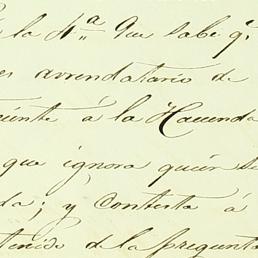 la 4.ª Que sabe q.
arrendatario de
á la Hacienda
que ignora quién se
da; y contesta á
tenido de la pregunta